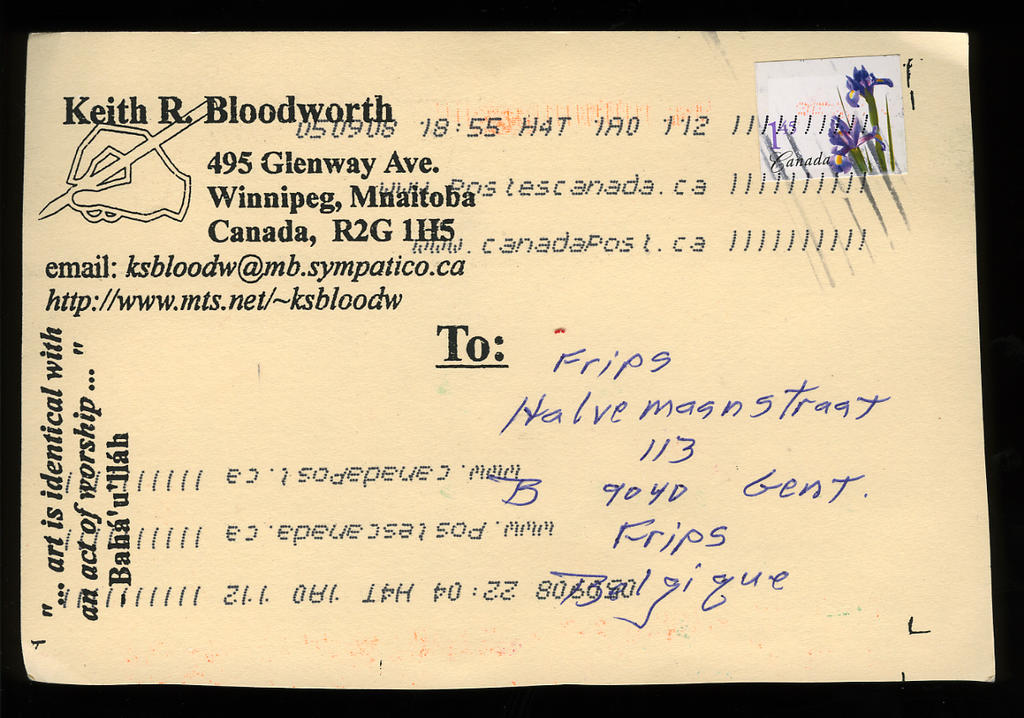 Keith R. Bloodworth
050908 18:55 H4T 1A0 112
495 Glenway Ave.
www.postescanada.ca
Winnipeg, Mnaitoba
Canada, R2G 1H5
www.canadapost.ca
email: ksbloodw@mb.sympatico.ca
http://www.mts.net/~ksbloodw
Canada
To:
Frips
Halvemaanstraat
113
B 9040 Gent.
Frips
Belgique
"... art is identical with
an act of worship ... "
Bahá'u'lláh
050908 22:04 H4T 1A0 112
www.postescanada.ca
www.canadapost.ca